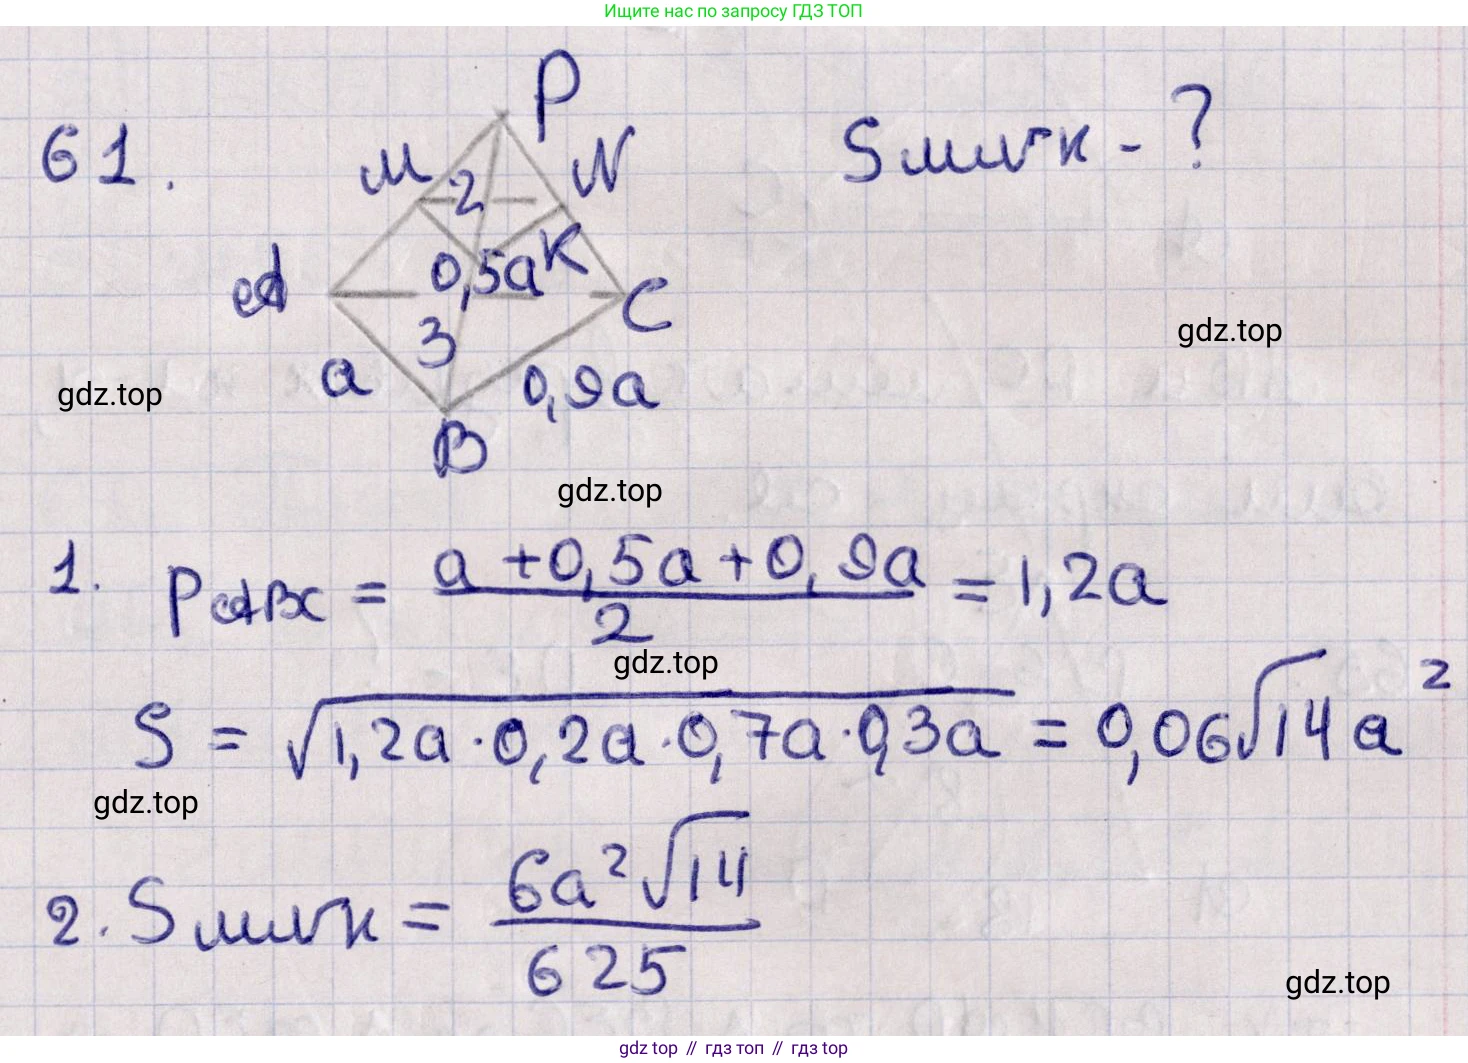 Ищите нас по запросу ГДЗ ТОП
61.
P
M
N
2
S MNK - ?
A
0,5a
K
C
3
gdz.top
a
0,9a
gdz.top
B
gdz.top
1. P ABC = a + 0,5a + 0,9a / 2 = 1,2a
gdz.top
S = √1,2a · 0,2a · 0,7a · 0,3a = 0,06√14 a²
gdz.top
2. S MNK = 6a²√14 / 625
gdz.top
gdz top // гдз топ // гдз top